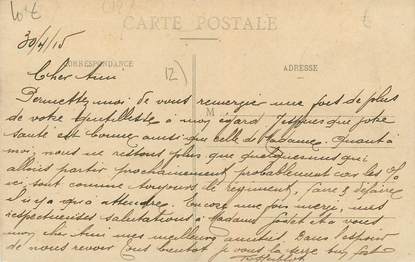 CARTE POSTALE
30/4/15
CORRESPONDANCE
ADRESSE
Cher Ami
M
Permettez moi de vous remercier une fois de plus
de votre gentillesse à mon égard. J'espère que votre
santé est bonne ainsi que celle de Madame. Quant à
moi, nous ne restons plus que quelques uns qui
allons partir prochainement probablement car les
ce sont comme toujours le régiment, faire & défaire
il n'y a qu'à attendre. Encore une fois merci, mes
respectueuses salutations à Madame et à vous
mon cher Ami mes meilleures amitiés. Dans l'espoir
de nous revoir tous bientôt je vous la serre bien fort